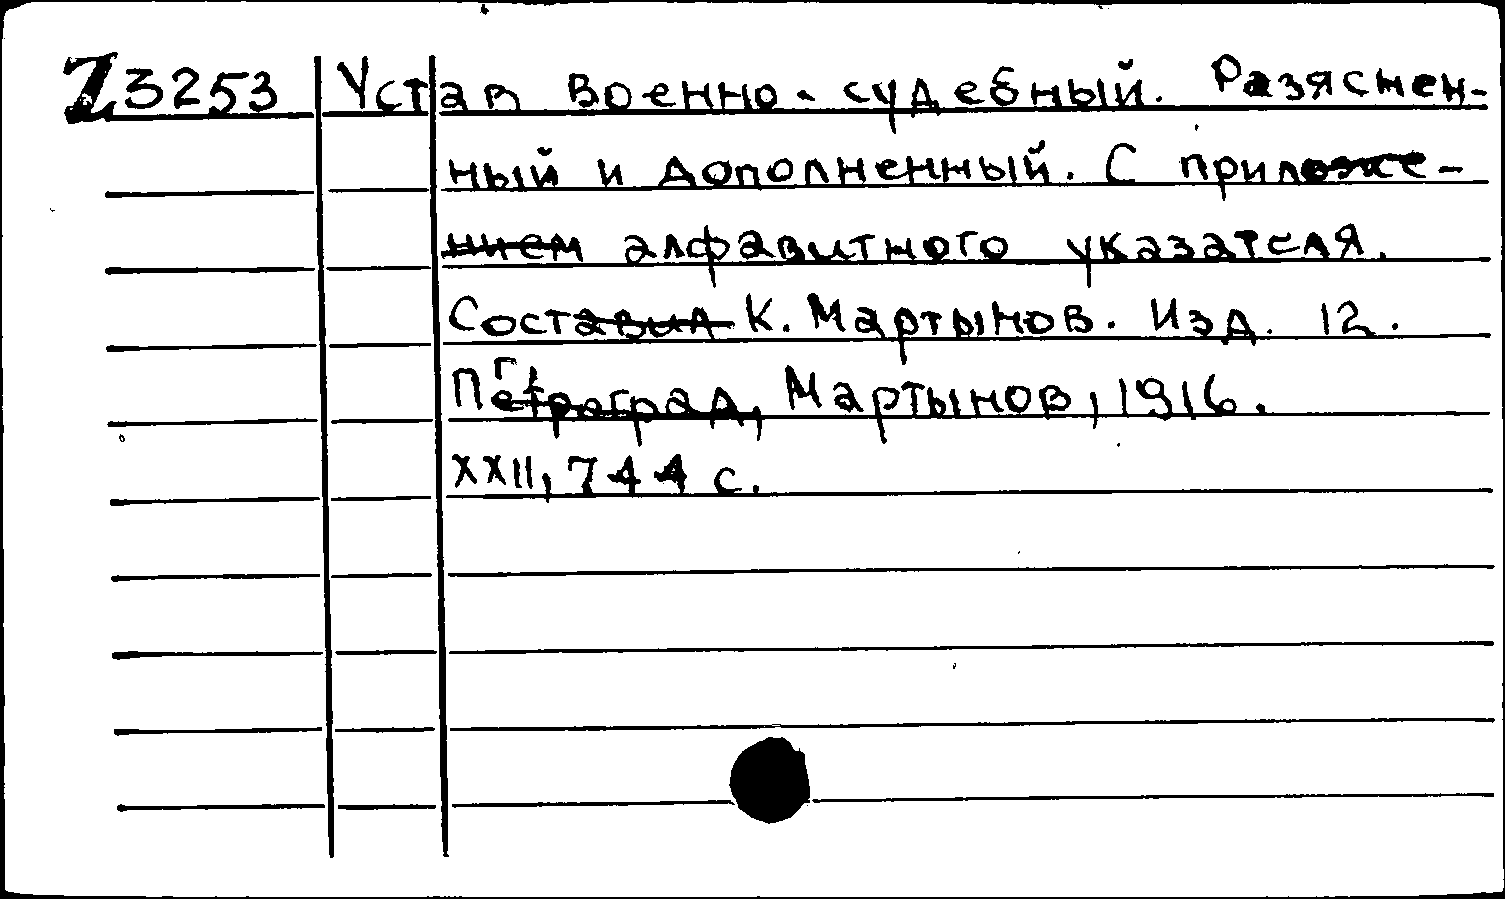 Z3253 Устав военно-судебный. Разяснен-
ный и дополненный. С приложе-
нием алфавитного указателя.
Составил К. Мартынов. Изд. 12.
Петроград, Мартынов, 1916.
XXII, 744 с.